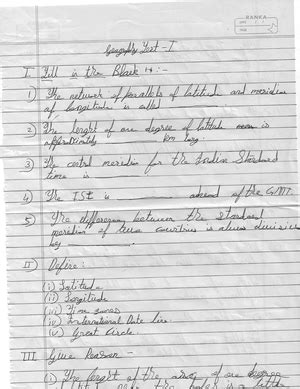 RANKA
Geography Test - I
I. Fill in the Blank :-
1) The network of parallels of latitude and meridian
of longitude is called
2) The lenght of one degree of latitude mean is
approximately ______ Km long
3) The central meridian for the Indian Standard
time is
4) The IST is ______ ahead of the GMT.
5) The difference between the standard
meridian of two countries is always
by ______
II) Define:
(i) Latitude
(ii) Longitude
(iii) Time zones
(iv) International Date Line
(v) Great Circle.
III Give Reason -
1) The lenght of the of one degree